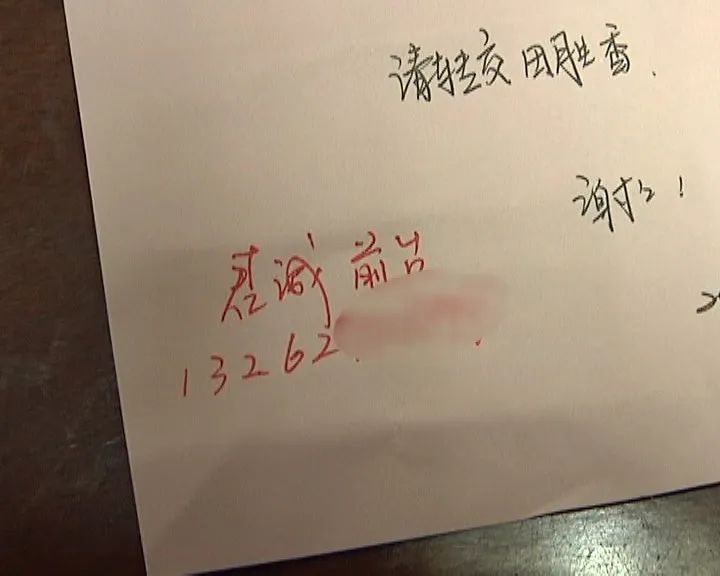 请转交田胜香.
谢谢!
诚 前台
13262